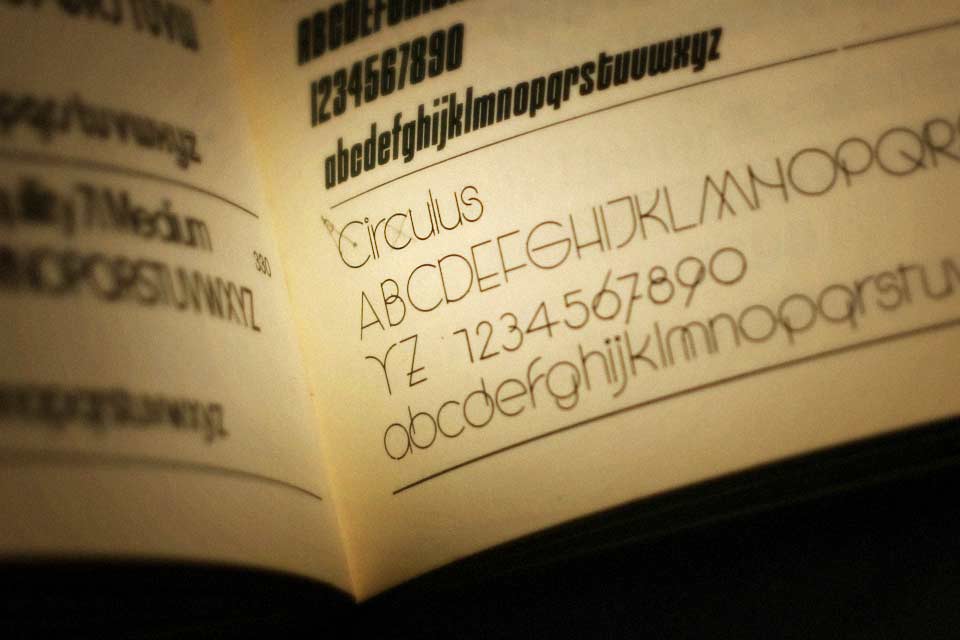 pqrstuvwxyz
7 Medium
NOPQRSTUVWXYZ
nopqrstuvwxyz
ABCDEFGHI
1234567890
abcdefghijklmnopqrstuvwxyz
Circulus
ABCDEFGHIJKLMNOPQR
YZ 1234567890
abcdefghijklmnopqrstuv